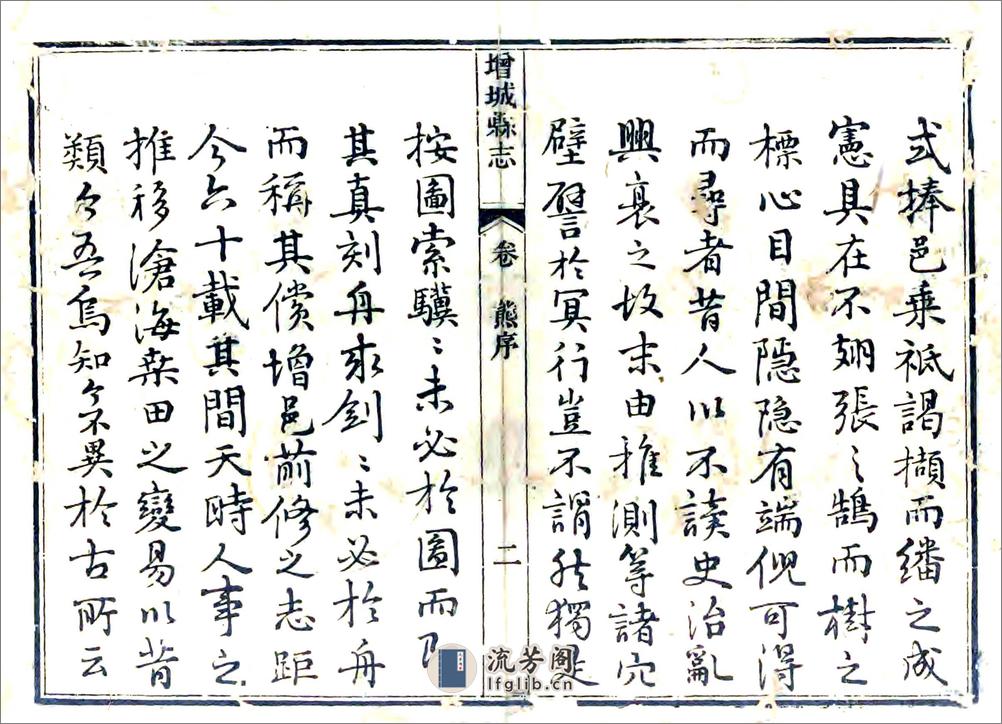 式捧邑乗祗謁擷而繙之成
憲具在不翅張之鵠而樹之
標心目間隠隐有端倪可得
而尋者昔人以不讀史治亂
興衰之故末由推測等諸穴
壁譬於冥行豈不謂然獨是
增城縣志
卷
熊序
二
按圖索驥〻未必於圖而
其真刻舟求劍〻未必於舟
而稱其償增邑前修之志距
今六十載其間天時人事之
推移滄海桒田之變易以昔
類今吾烏知不異於古所云
流芳阁
lfglib.cn